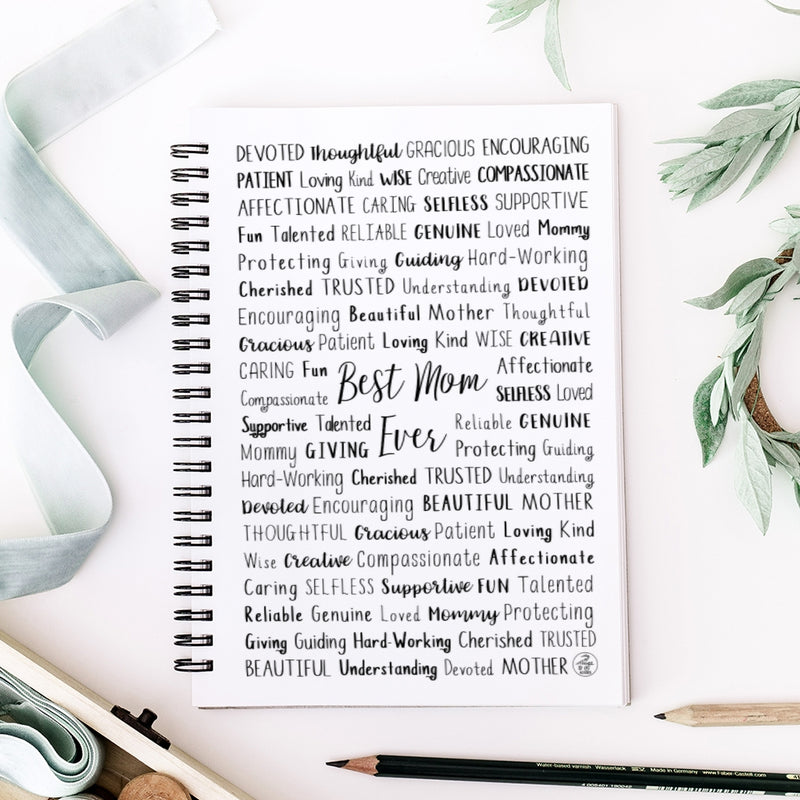 DEVOTED Thoughtful GRACIOUS ENCOURAGING
PATIENT Loving Kind WISE Creative COMPASSIONATE
AFFECTIONATE CARING SELFLESS SUPPORTIVE
Fun Talented RELIABLE GENUINE Loved Mommy
Protecting Giving Guiding Hard-Working
Cherished TRUSTED Understanding DEVOTED
Encouraging Beautiful Mother Thoughtful
Gracious Patient Loving Kind WISE CREATIVE
CARING Fun Best Mom Affectionate
Compassionate SELFLESS Loved
Supportive Talented Ever Reliable GENUINE
Mommy GIVING Protecting Guiding
Hard-Working Cherished TRUSTED Understanding
Devoted Encouraging BEAUTIFUL MOTHER
THOUGHTFUL Gracious Patient Loving Kind
Wise Creative Compassionate Affectionate
Caring SELFLESS Supportive FUN Talented
Reliable Genuine Loved Mommy Protecting
Giving Guiding Hard-Working Cherished TRUSTED
BEAUTIFUL Understanding Devoted MOTHER
Water-based varnish Wasserlack Made in Germany www.Faber-Castell.com